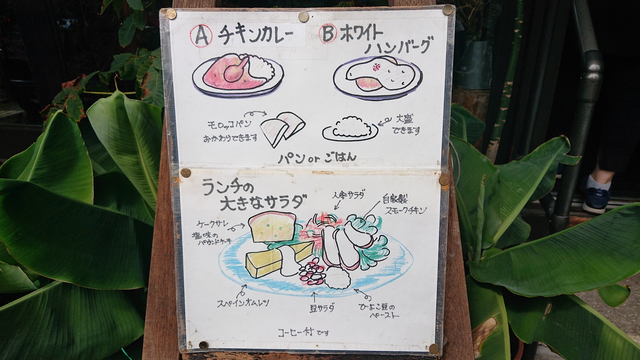 A チキンカレー
B ホワイト
ハンバーグ
モロッコパン
おかわりできます
大盛
できます
パン or ごはん
ランチの
大きなサラダ
ケークサレ
塩味の
パウンドケーキ
人参サラダ
自家製
スモークチキン
スペインオムレツ
豆サラダ
ひよこ豆の
ペースト
コーヒー付です